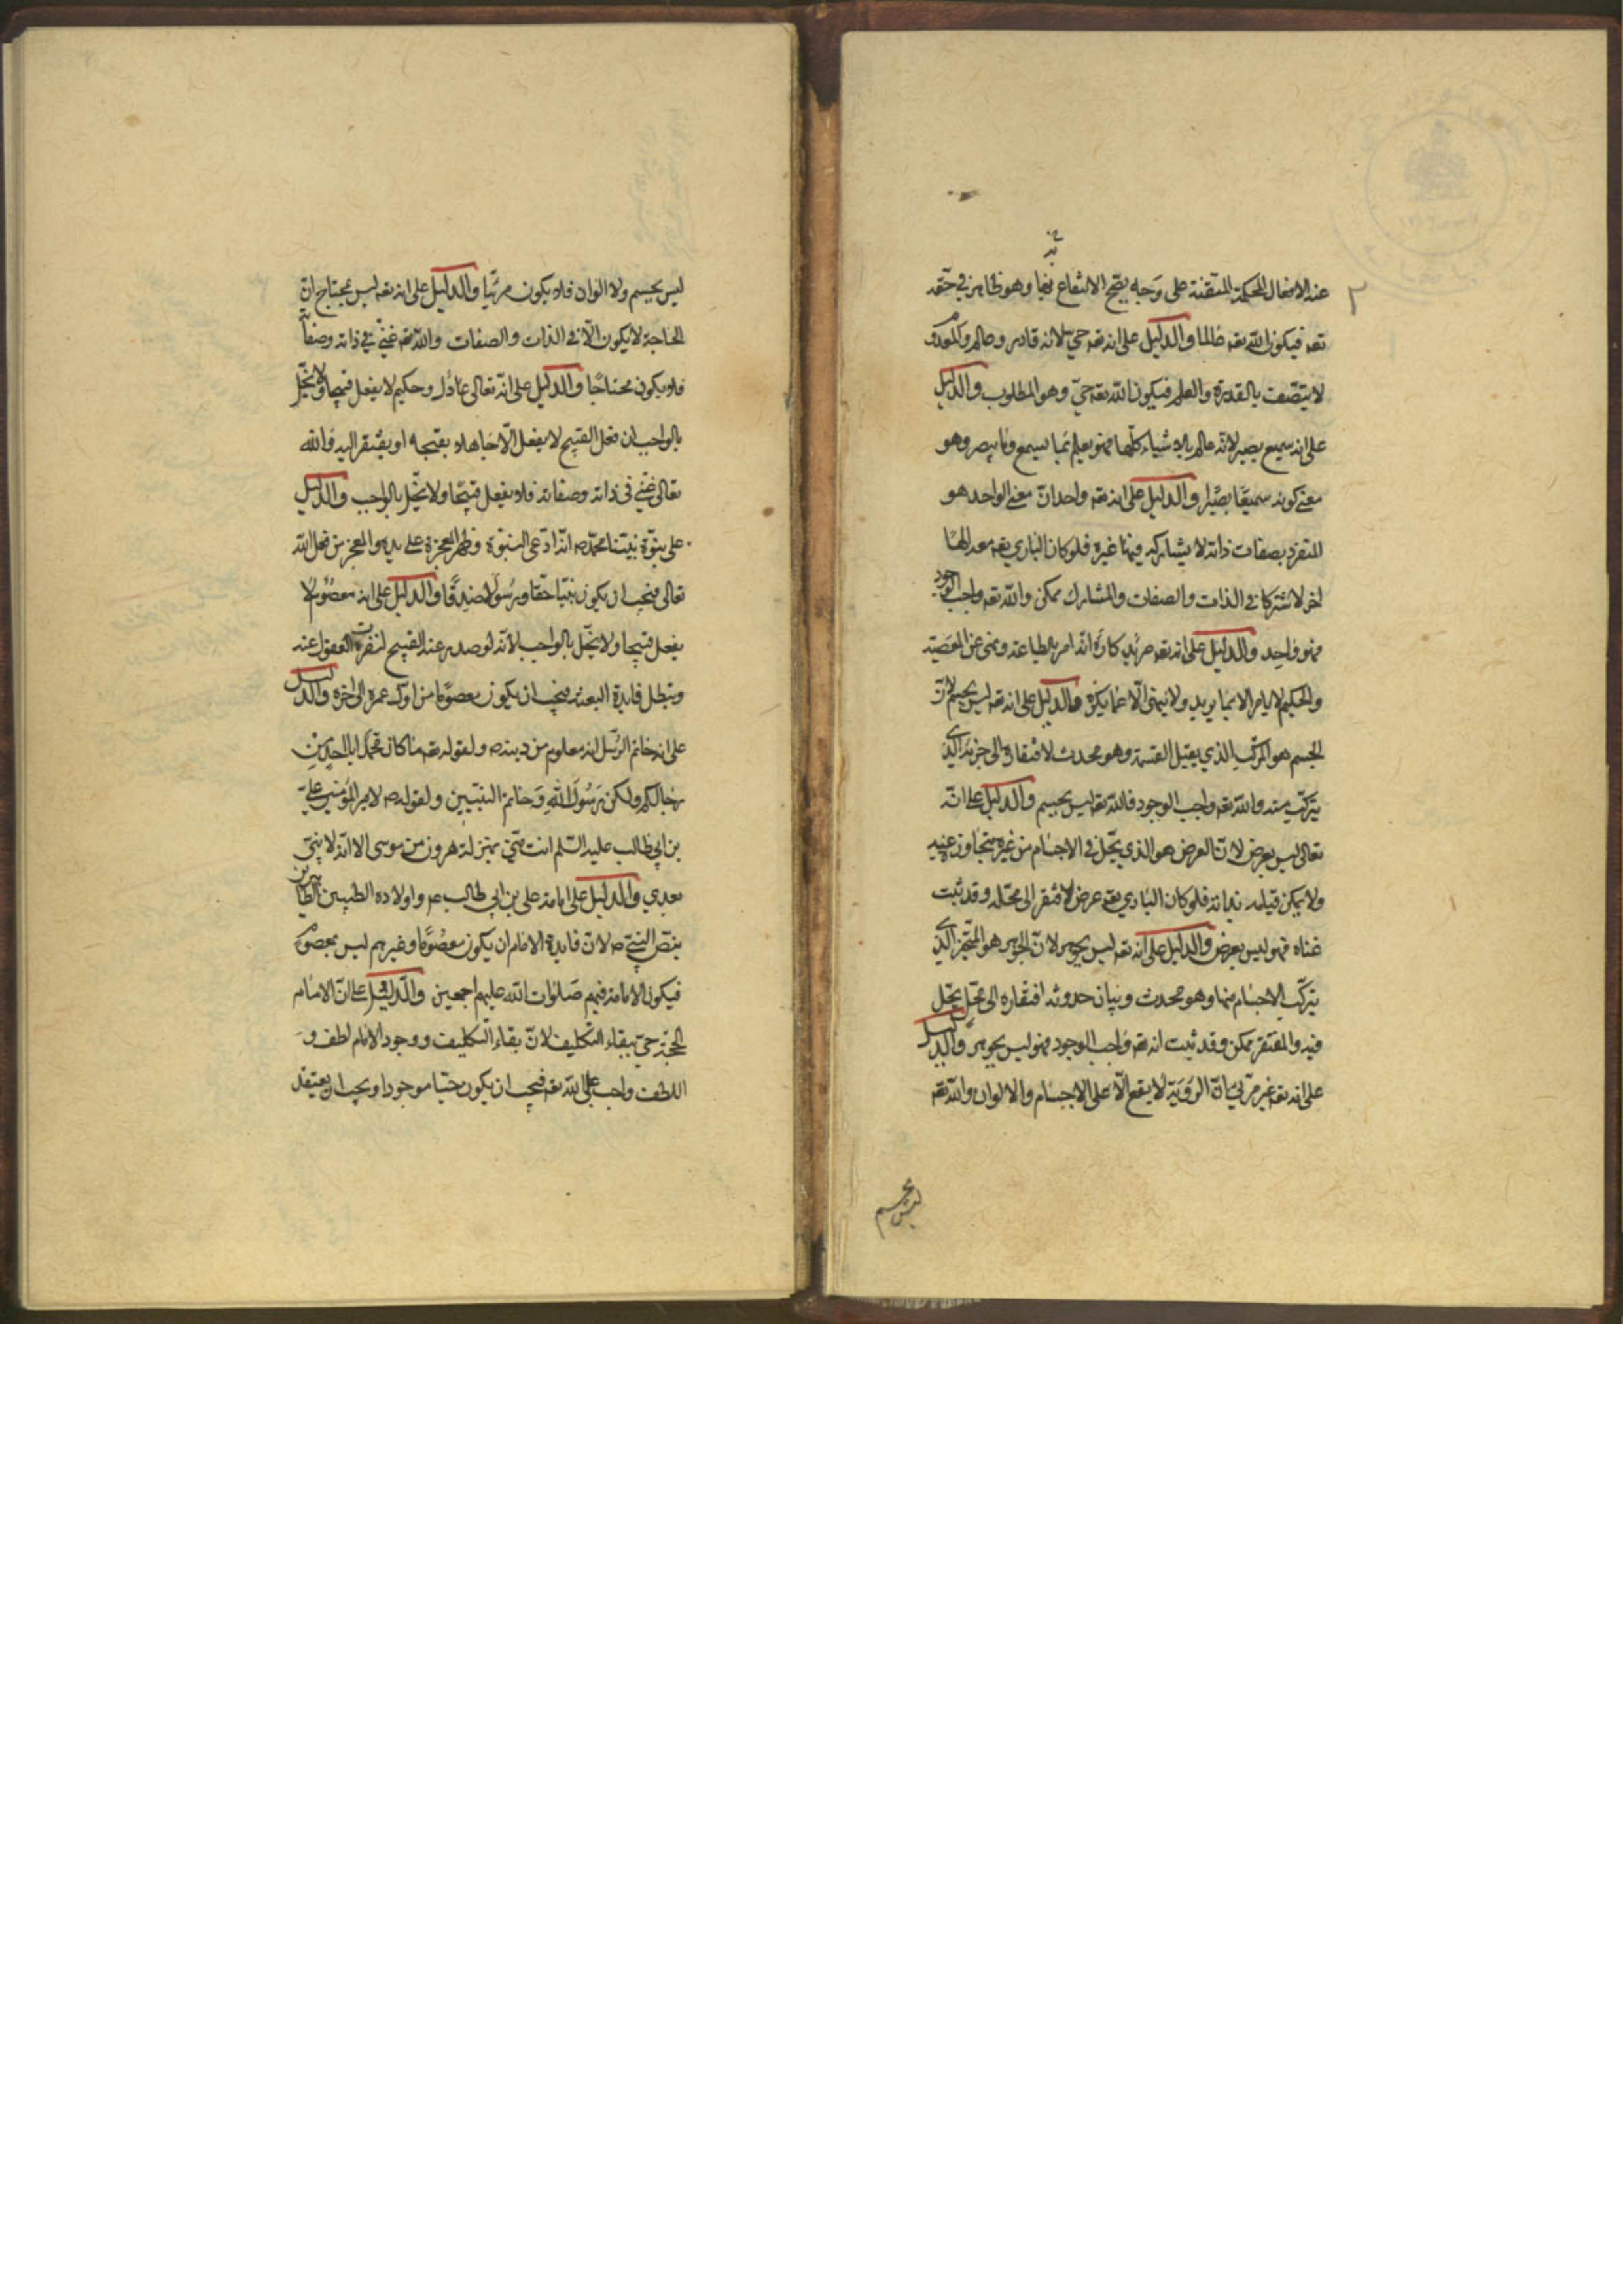 ٢
عنه الافعال المحكمة المتقنة على وجه يصح الانتفاع بها وهو ظاهر في حقه
تعه فيكون الله تعه عالما والدليل على انه تعه حي لانه قادر وعالم وكلمعدوم
لا يتصف بالقدرة والعلم فيكون الله تعه حي وهو المطلوب والدليل
على انه سميع بصير لانه عالم بالاشياء كلها فهو يعلم بما يسمع وما يبصر وهو
معنى كونه سميعا بصيرا والدليل على انه تعه واحد انّ معنى الواحد هو
المتفرد بصفات ذاته لا يشاركه فيها غيره فلو كان الباري تعه معه الها
اخر لاشتركا في الذات والصفات والمشارك ممكن والله تعه واجب الوجود
فهو واحد والدليل على انه تعه مريد كاره انه امر بالطاعة ونهى عن المعصية
والحكيم لا يامر الا بما يريد ولا ينهى الّا عما يكره والدليل على انه تعه ليس بجسم لانّ
الجسم هو المركب الذي يقبل القسمة وهو محدث لافتقاره الى جزئه الذي
يتركب منه والله تعه واجب الوجود فالله تعه ليس بجسم والدليل على انّه
تعالى ليس بعرض لانّ العرض هو الذي يحلّ في الاجسام من غير متجاوز عنه
ولا يمكن قيامه بذاته فلو كان الباري تعه عرض لافتقر الى محله وقد ثبت
غناه فهو ليس بعرض والدليل على انه تعه ليس بجوهر لانّ الجوهر هو المتحيز الذي
يتركب الاجسام منها وهو محدث وبيان حدوثه افتقاره الى محل يحل
فيه والمفتقر ممكن وقد ثبت انه تعه واجب الوجود فهو ليس بجوهر والدليل
على انه تعه غير مرئي بانّ الرؤية لا يقع الّا على الاجسام والالوان والله تعه
ليس بجسم
ليس بجسم ولا الوان فلا يكون مرئيا والدليل على انه تعه ليس بمحتاج انّ
الحاجة لا يكون الّا في الذات والصفات والله تعه غني في ذاته وصفاته
فلا يكون محتاجا والدليل على انّه تعالى عادل وحكيم لا يفعل قبيحا ولا يخلّ
بالواجب ان فعل القبيح لا يفعل الّا جاهلا بقبحه او يفتقر اليه فالله
تعالى غني في ذاته وصفاته فلا يفعل قبيحا ولا يخلّ بالواجب والدليل
على نبوّة نبيّنا محمّد ص انّه ادعى النبوّة وظهر المعجزة على يده والمعجز من فعل الله
تعالى فيجب ان يكون نبيا حقا ورسولا صدقا والدليل على انه معصوم لا
يفعل قبيحا ولا يخلّ بالواجب لانّه لو صدر عنه القبيح لنفرت العقول عنه
وبتطل فايدة البعثة فيجب ان يكون معصوما من اول عمره الى اخره والدليل
على انه خاتم الرسل انه معلوم من دينه ص ولقوله تعه ما كان محمد ابا احد من
رجالكم ولكن رسول الله وخاتم النبيين ولقوله ص لامير المؤمنين علي
بن ابي طالب عليه السّلم انت منّي بمنزلة هرون من موسى الا انّه لا نبيّ
بعدي والدليل على امامة على بن ابي طالب ع واولاده الطيبين الطاهرين
بنصّ النبي ص لانّ فايدة الامام ان يكون معصوما وغيرهم ليس بمعصوم
فيكون الامامة فيهم صلوات الله عليهم اجمعين والدليل على انّ الامام
الحجة حيّ ببقاء التكليف لانّ بقاء التكليف ووجود الامام لطف و
اللطف واجب على الله تعه فيجب ان يكون حيا موجودا ويجب ان يعتقد